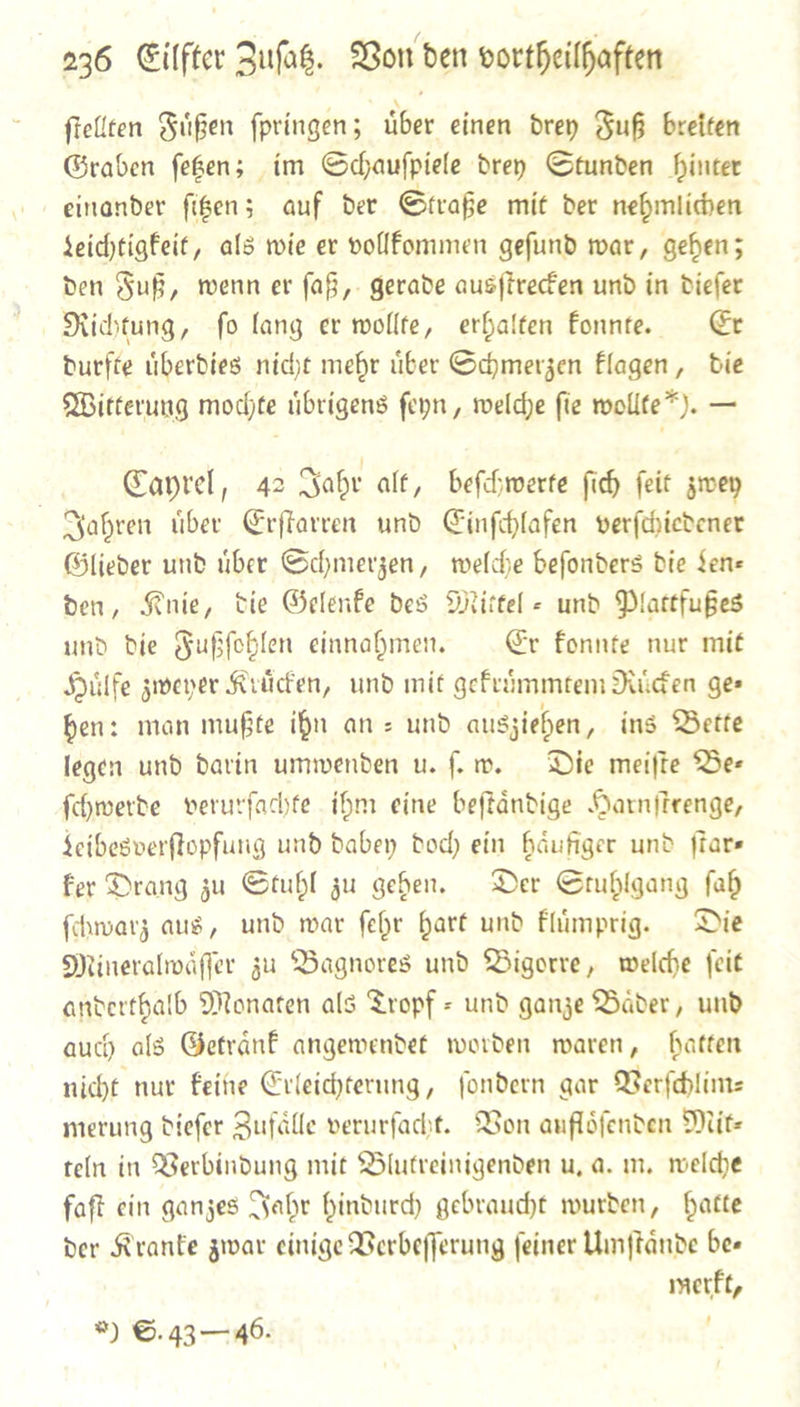 236 Eilfter Zusatz. Von den vortheilhaften
stellten Füßen springen; über einen drey Fuß breiten
Graben setzen; im Schauspiele drey Stunden hinter
einander sitzen; auf der Straße mit der nehmlichen
Leichtigkeit, als wie er vollkommen gesund war, gehen;
den Fuß, wenn er saß, gerade ausstrecken und in dieser
Richtung, so lang er wollte, erhalten konnte. Er
durfte überdies nicht mehr über Schmerzen klagen, die
Witterung mochte übrigens seyn, welche sie wollte*). —
Caprel, 42 Jahr alt, beschwerte sich seit zwey
Jahren über Erstarren und Einschlafen verschiedener
Glieder und über Schmerzen, welche besonders die Len-
den, Knie, die Gelenke des Mittel- und Plattfußes
und die Fußsohlen einnahmen. Er konnte nur mit
Hülfe zweyer Krücken, und mit gekrümmtem Rücken ge-
hen: man mußte ihn an- und ausziehen, ins Bette
legen und darin umwenden u. s. w. Die meiste Be-
schwerde verursachte ihm eine beständige Harnstrenge,
Leibesverstopfung und dabey doch ein häufiger und star-
ker Drang zu Stuhl zu gehen. Der Stuhlgang sah
schwarz aus, und war sehr hart und klümprig. Die
Mineralwässer zu Bagnores und Bigorre, welche seit
anderthalb Monaten als Tropf- und ganze Bäder, und
auch als Getränk angewendet worden waren, hatten
nicht nur keine Erleichterung, sondern gar Verschlim-
merung dieser Zufälle verursacht. Von auflösenden Mit-
teln in Verbindung mit Blutreinigenden u. a. m. welche
fast ein ganzes Jahr hindurch gebraucht wurden, hatte
der Kranke zwar einige Verbesserung seiner Umstände be-
merkt,
*) S. 43—46.